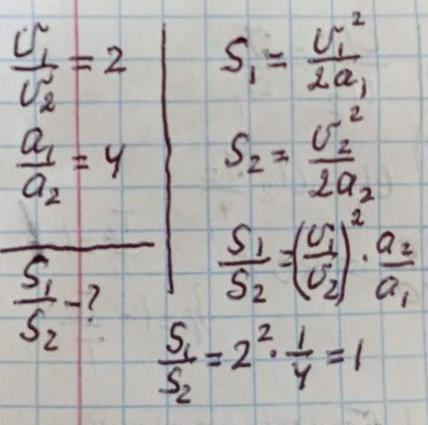 υ₁/υ₂ = 2
a₁/a₂ = 4
S₁/S₂ - ?
S₁ = υ₁²/2a₁
S₂ = υ₂²/2a₂
S₁/S₂ = (υ₁/υ₂)² · a₂/a₁
S₁/S₂ = 2² · 1/4 = 1